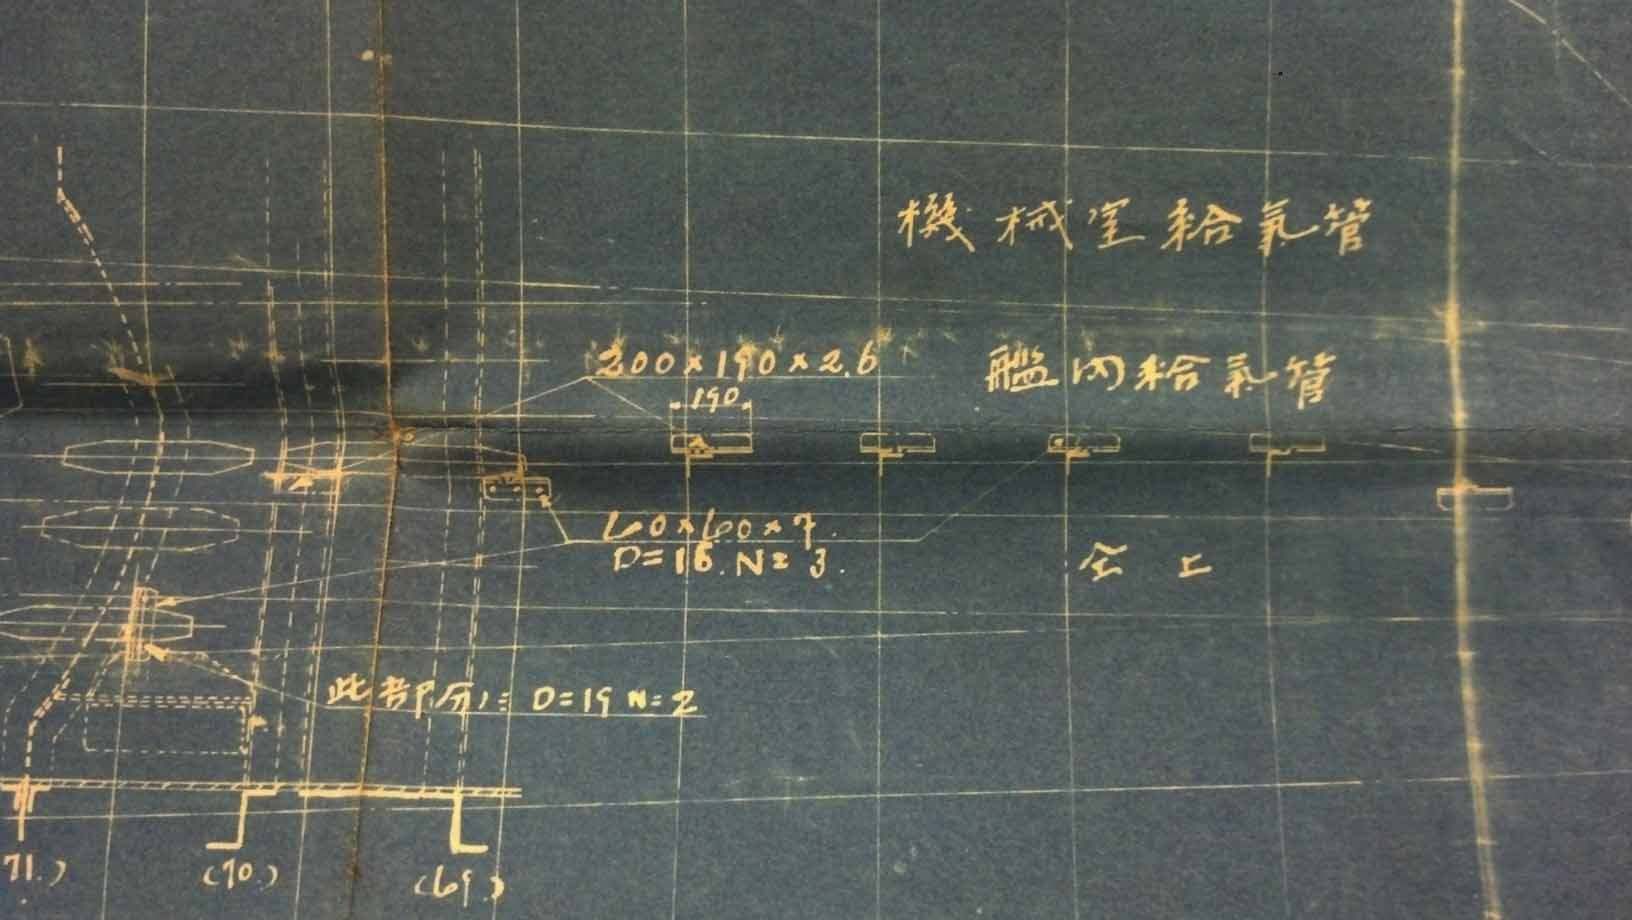 機械室給氣管
200×190×2.6
艦內給氣管
190
60×60×7.
D=16. N=3.
仝上
此部分ハ D=19 N=2
71.)
(70.)
(69.)